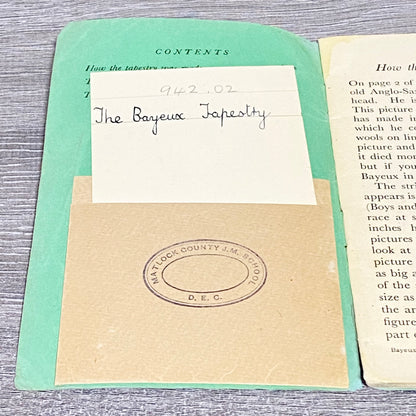 CONTENTS
How the tapestry was made
942.02
The Bayeux Tapestry
MATLOCK COUNTY J.M. SCHOOL
D.E.C.
How
On page 2 of
old Anglo-Sa
head. He is
This picture
has made i
which he co
wools on lin
picture and
it died mor
but if you
Bayeux in
The str
appears is
(Boys and
race at s
inches h
pictures
look at
picture
as big a
of the
size as
the ar
figure
part o
Bayeux